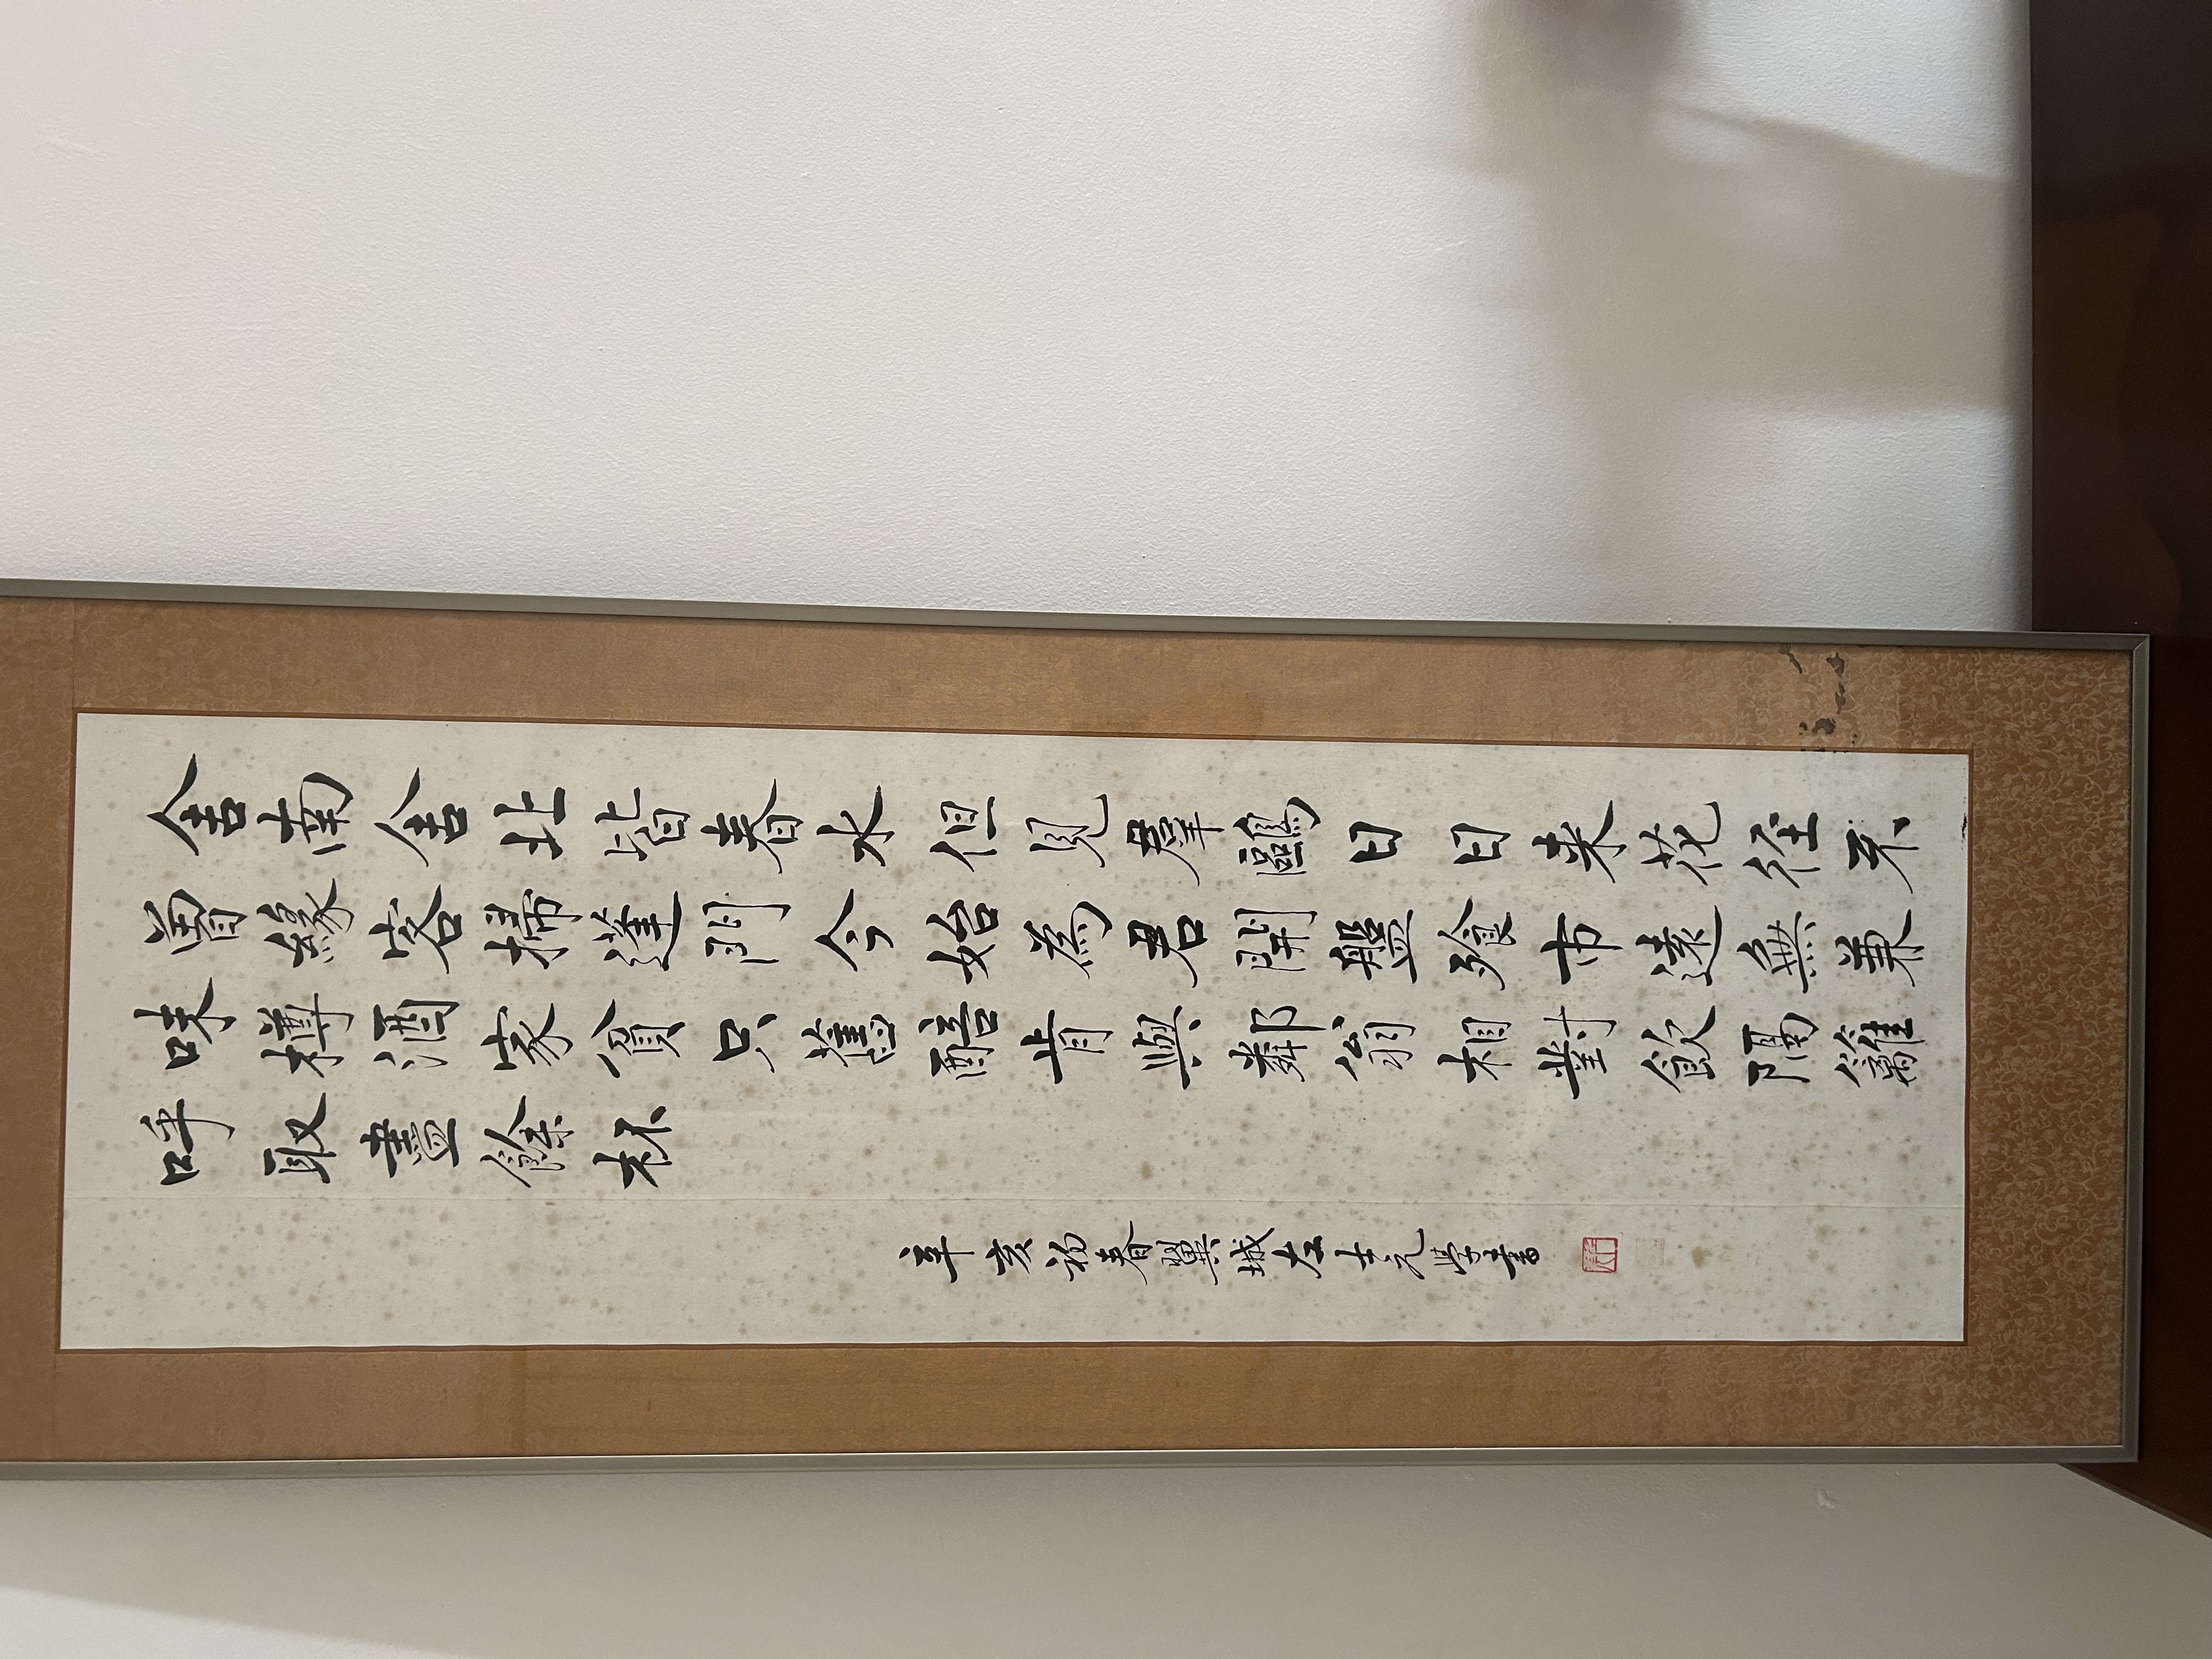 舍南舍北皆春水但見羣鷗日日来花径不
曽緣客掃蓬門今始為君開盤飱市遠無兼
味樽酒家貧只舊醅肯與鄰翁相對飲隔籬
呼取盡餘杯
辛亥初春翼城左士元學書